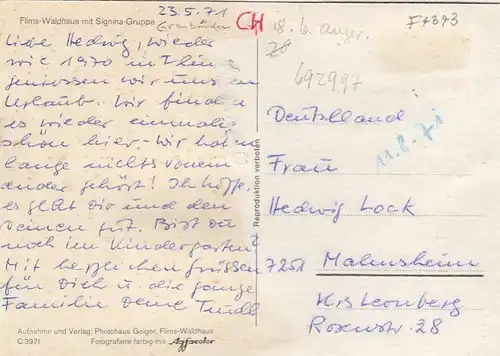 Flims-Waldhaus mit Signina-Gruppe
23.5.71
Graubünden
CH
18.6. anger.
28
F+343
692997
Liebe Hedwig, wieder
wie 1970 in Flims
geniessen wir uns en
Urlaub. Wir finden
es wieder einmalig
schön hier. – Wir haben
lange nichts vonein
ander gehört! Ich hoffe,
es geht Dir und den
Deinen gut. Bist Du
noch im Kindergarten?
Mit herzlichen Grüssen
für Dich u. die ganze
Familie Deine Trudl
Deutschland
11.8.71
Frau
Hedwig Lock
7251 Malmsheim
Krs Leonberg
Rosenstr. 28
Reproduktion verboten
Aufnahme und Verlag: Photohaus Geiger, Flims-Waldhaus
C 3971 Fotografiere farbig mit Agfacolor